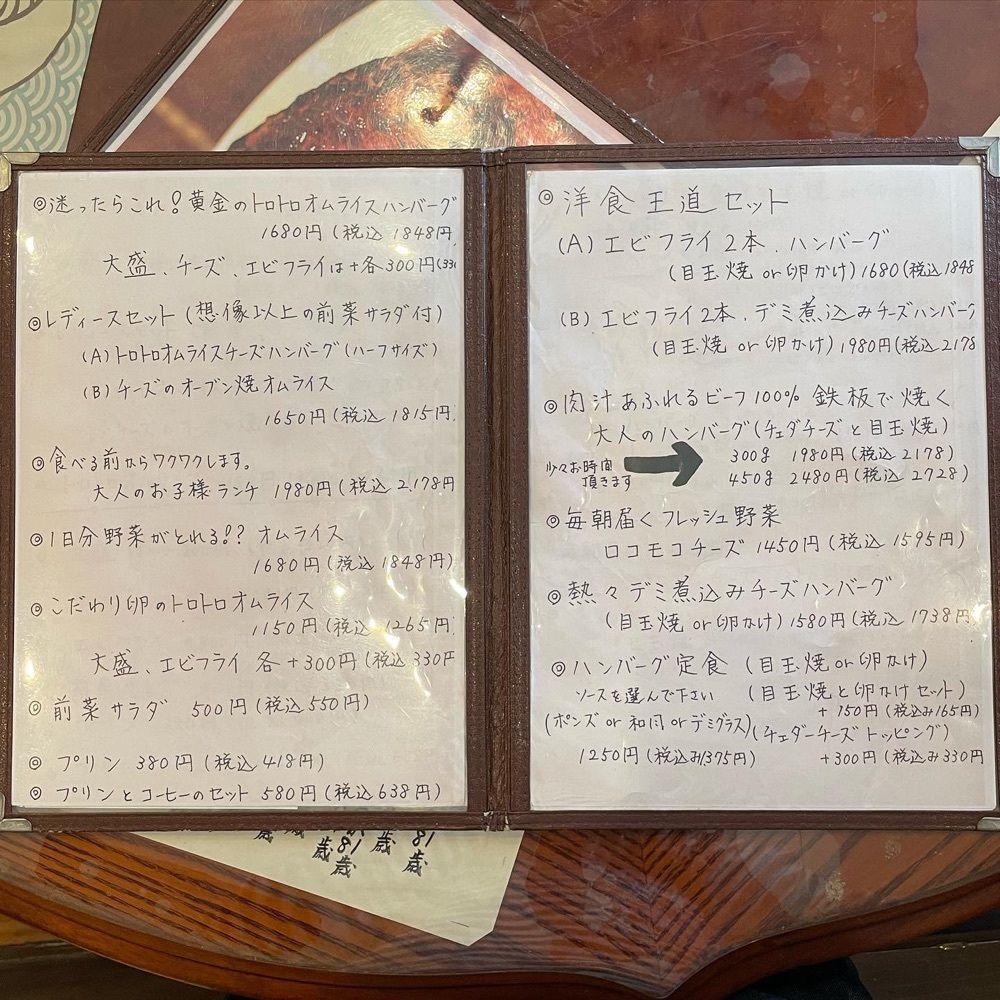 ◎迷ったらこれ!黄金のトロトロオムライスハンバーグ
1680円(税込 1848円
大盛、チーズ、エビフライは+各300円(330
◎レディースセット(想像以上の前菜サラダ付)
(A)トロトロオムライスチーズハンバーグ(ハーフサイズ)
(B)チーズのオーブン焼オムライス
1650円(税込 1815円
◎食べる前からワクワクします。
大人のお子様ランチ 1980円(税込 2,178円
◎1日分野菜がとれる!? オムライス
1680円(税込 1848円)
◎こだわり卵のトロトロオムライス
1150円(税込 1265円
大盛、エビフライ 各+300円(税込 330円
◎前菜サラダ 500円(税込550円)
◎プリン 380円(税込418円)
◎プリンとコーヒーのセット 580円(税込638円)
◎洋食王道セット
(A)エビフライ2本、ハンバーグ
(目玉焼or卵かけ)1680(税込1848
(B)エビフライ2本、デミ煮込みチーズハンバーグ
(目玉焼or卵かけ)1980円(税込2178
◎肉汁あふれるビーフ100% 鉄板で焼く
大人のハンバーグ(チェダチーズと目玉焼)
少々お時間
頂きます
300g 1980円(税込 2178)
450g 2480円(税込 2728)
◎毎朝届くフレッシュ野菜
ロコモコチーズ 1450円(税込 1595円)
◎熱々デミ煮込みチーズハンバーグ
(目玉焼or卵かけ)1580円(税込 1738円)
◎ハンバーグ定食(目玉焼or卵かけ)
ソースを選んで下さい (目玉焼と卵かけセット)
+150円(税込み165円)
(ポンズor和風orデミグラス)(チェダーチーズトッピング)
1250円(税込み1375円) +300円(税込み330円
歳 歳 81歳 歳 81歳